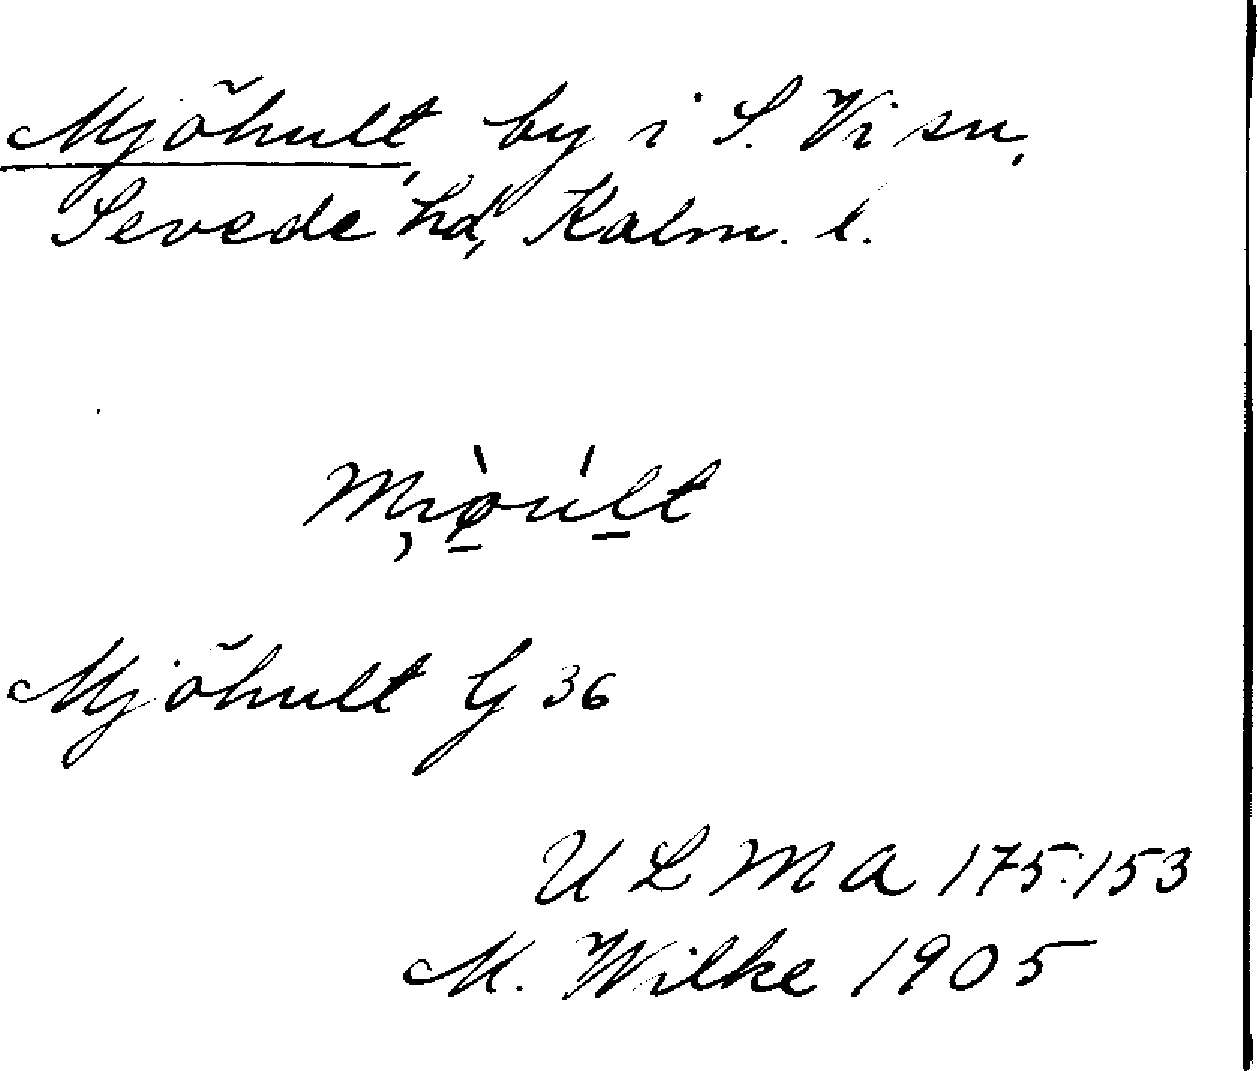 Mjöhult, by i S. Vi sn,
Sevede hd, Kalm. l.
Mjöhult G 36
ULMA 175:153
M. Wilke 1905